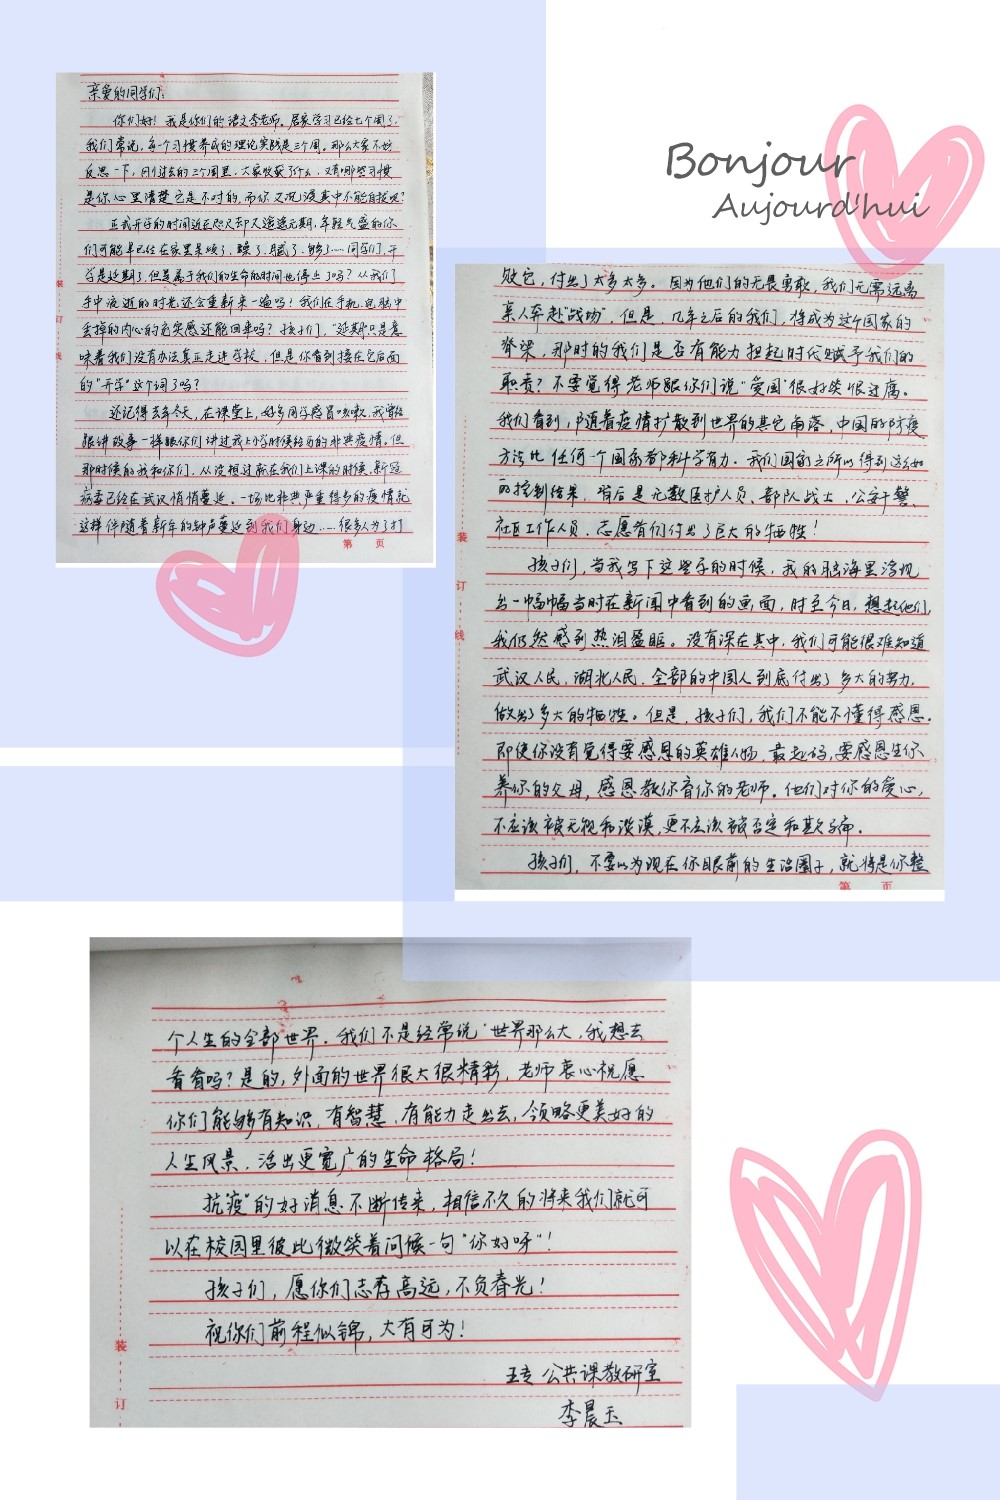 Bonjour
Aujourd'hui
亲爱的同学们:
你们好!我是你们的语文李老师。居家学习已经七个周了,
我们常说,每一个习惯养成的理论实践是三个周。那么大家不妨
反思一下,同们过去的三个周里,大家收获了什么,又有哪些习惯
是你心里清楚它是不对的,而你又沉浸其中不能自拔呢?
正式开学的时间近在咫尺却又遥遥无期,年轻气盛的你
们可能早已经在家里呆烦了、躁了、腻了、够了……同学们,开
学是延期了,但是属于我们的生命的时间也停止了吗?从我们
手中流逝的时光还会重新来一遍吗?我们在手机、电脑中
丢掉的内心的充实感还能回来吗?孩子们,“延期”只是意
味着我们没有办法真正走进学校,但是你看到接在它后面
的“开学”这个词了吗?
还记得去年冬天,在课堂上,好多同学感冒咳嗽,我曾经
跟讲故事一样跟你们讲过我上小学时候经历的非典疫情。但
那时候的我和你们,从没想过就在我们上课的时候,新冠
病毒已经在武汉悄悄蔓延。一场比非典严重得多的疫情就
这样伴随着新年的钟声蔓延到我们身边……很多人为了打
第 页
败它,付出了太多太多。因为他们的无畏勇敢,我们无需远离
亲人奔赴“战场”,但是,几年之后的我们,将成为这个国家的
脊梁,那时的我们是否有能力担起时代赋予我们的
职责?不要觉得老师跟你们说“爱国”很好笑很迂腐。
我们看到,随着疫情扩散到世界的其它角落,中国的防疫
方法比任何一个国家都科学有力。我们国家之所以得到这么如
的控制结果,背后是无数医护人员、部队战士、公安干警、
社区工作人员、志愿者们付出了巨大的牺牲!
孩子们,当我写下这些字的时候,我的脑海里浮现
出一幅幅当时在新闻中看到的画面,时至今日,想起他们,
我仍然感到热泪盈眶。没有深在其中,我们可能很难知道
武汉人民,湖北人民,全部的中国人到底付出了多大的努力,
做出了多大的牺牲。但是,孩子们,我们不能不懂得感恩。
即使你没有觉得要感恩的英雄人物,最起码,要感恩生你
养你的父母,感恩教你育你的老师。他们对你的爱心,
不应该被无视和淡漠,更不应该被否定和欺骗。
孩子们,不要以为现在你眼前的生活圈子,就将是你整
装
订
线
第 页
个人生的全部世界。我们不是经常说“世界那么大,我想去
看看吗?是的,外面的世界很大很精彩,老师衷心祝愿
你们能够有知识,有智慧,有能力走出去,领略更美好的
人生风景,活出更宽广的生命格局!
抗“疫”的好消息不断传来,相信不久的将来我们就可
以在校园里彼此微笑着问候一句“你好呀”!
孩子们,愿你们志存高远,不负春光!
祝你们前程似锦,大有可为!
五专 公共课教研室
李晨玉
装
订